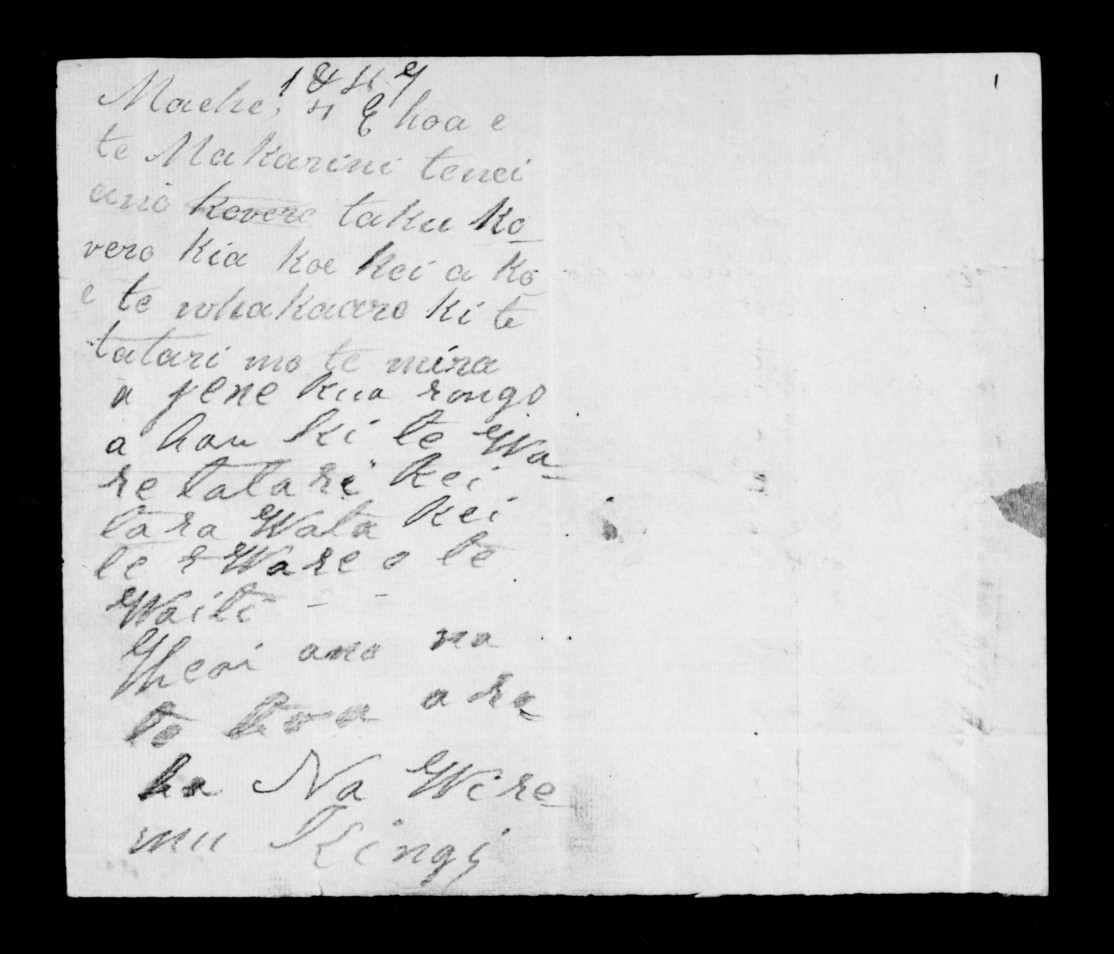 1
1847
Maehe, 4 E hoa e
te Makarini tenei
ano kovero taku ko
vero kia koe kei a ko
e te whakaaro ki te
tatari mo te mira
a pene kua rongo
a hau ki te Wa
re tatari kei
tara Wata kei
te Ware o te
Waiti - -
Heoi ano na
to hoa aro
ha Na Wire
mu Kingi